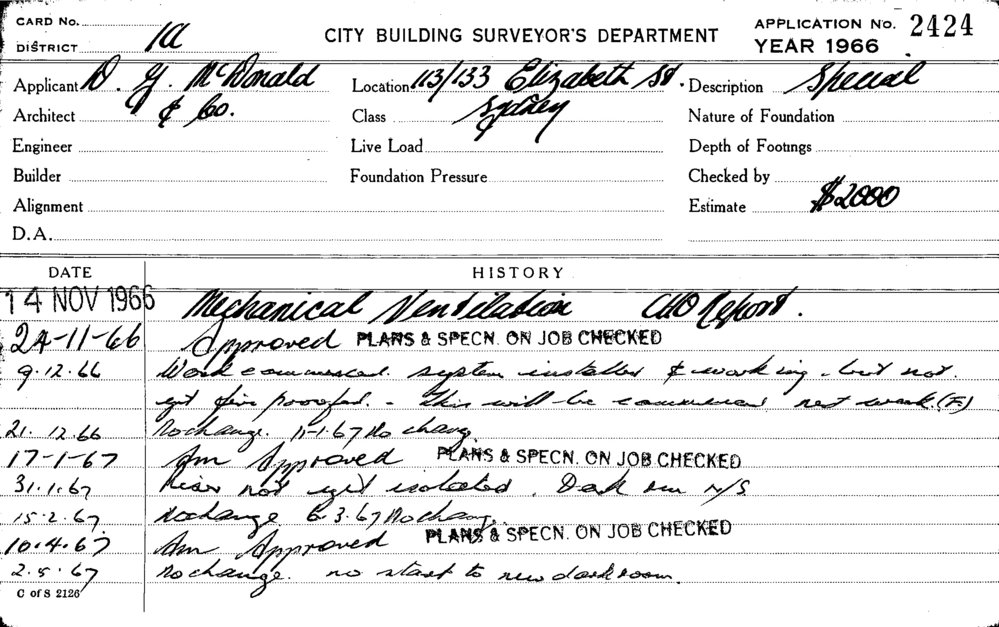 CARD No.
DISTRICT 1a
CITY BUILDING SURVEYOR'S DEPARTMENT
APPLICATION No. 2424
YEAR 1966
Applicant D. G. McDonald
Location 113/133 Elizabeth St.
Description Special
Architect & Co.
Class Sydney
Nature of Foundation
Engineer
Live Load
Depth of Footings
Builder
Foundation Pressure
Checked by
Alignment
Estimate $2000
D.A.
DATE HISTORY
14 NOV 1966 Mechanical Ventilation CHO Report.
24-11-66 Approved PLANS & SPECN. ON JOB CHECKED
9.12.66 Work commenced. system installed & working - but not
yet fire proofed. - this will be commenced next week. (F)
21.12.66 No change. 11-1.67 No change
17-1-67 Am Approved PLANS & SPECN. ON JOB CHECKED
31.1.67 Riser not yet isolated. Dark rm N/S
15.2.67. No change 6.3.67 No change.
10.4.67 Am Approved PLANS & SPECN. ON JOB CHECKED
2.5.67 No change. no start to new darkroom.
C of S 2126